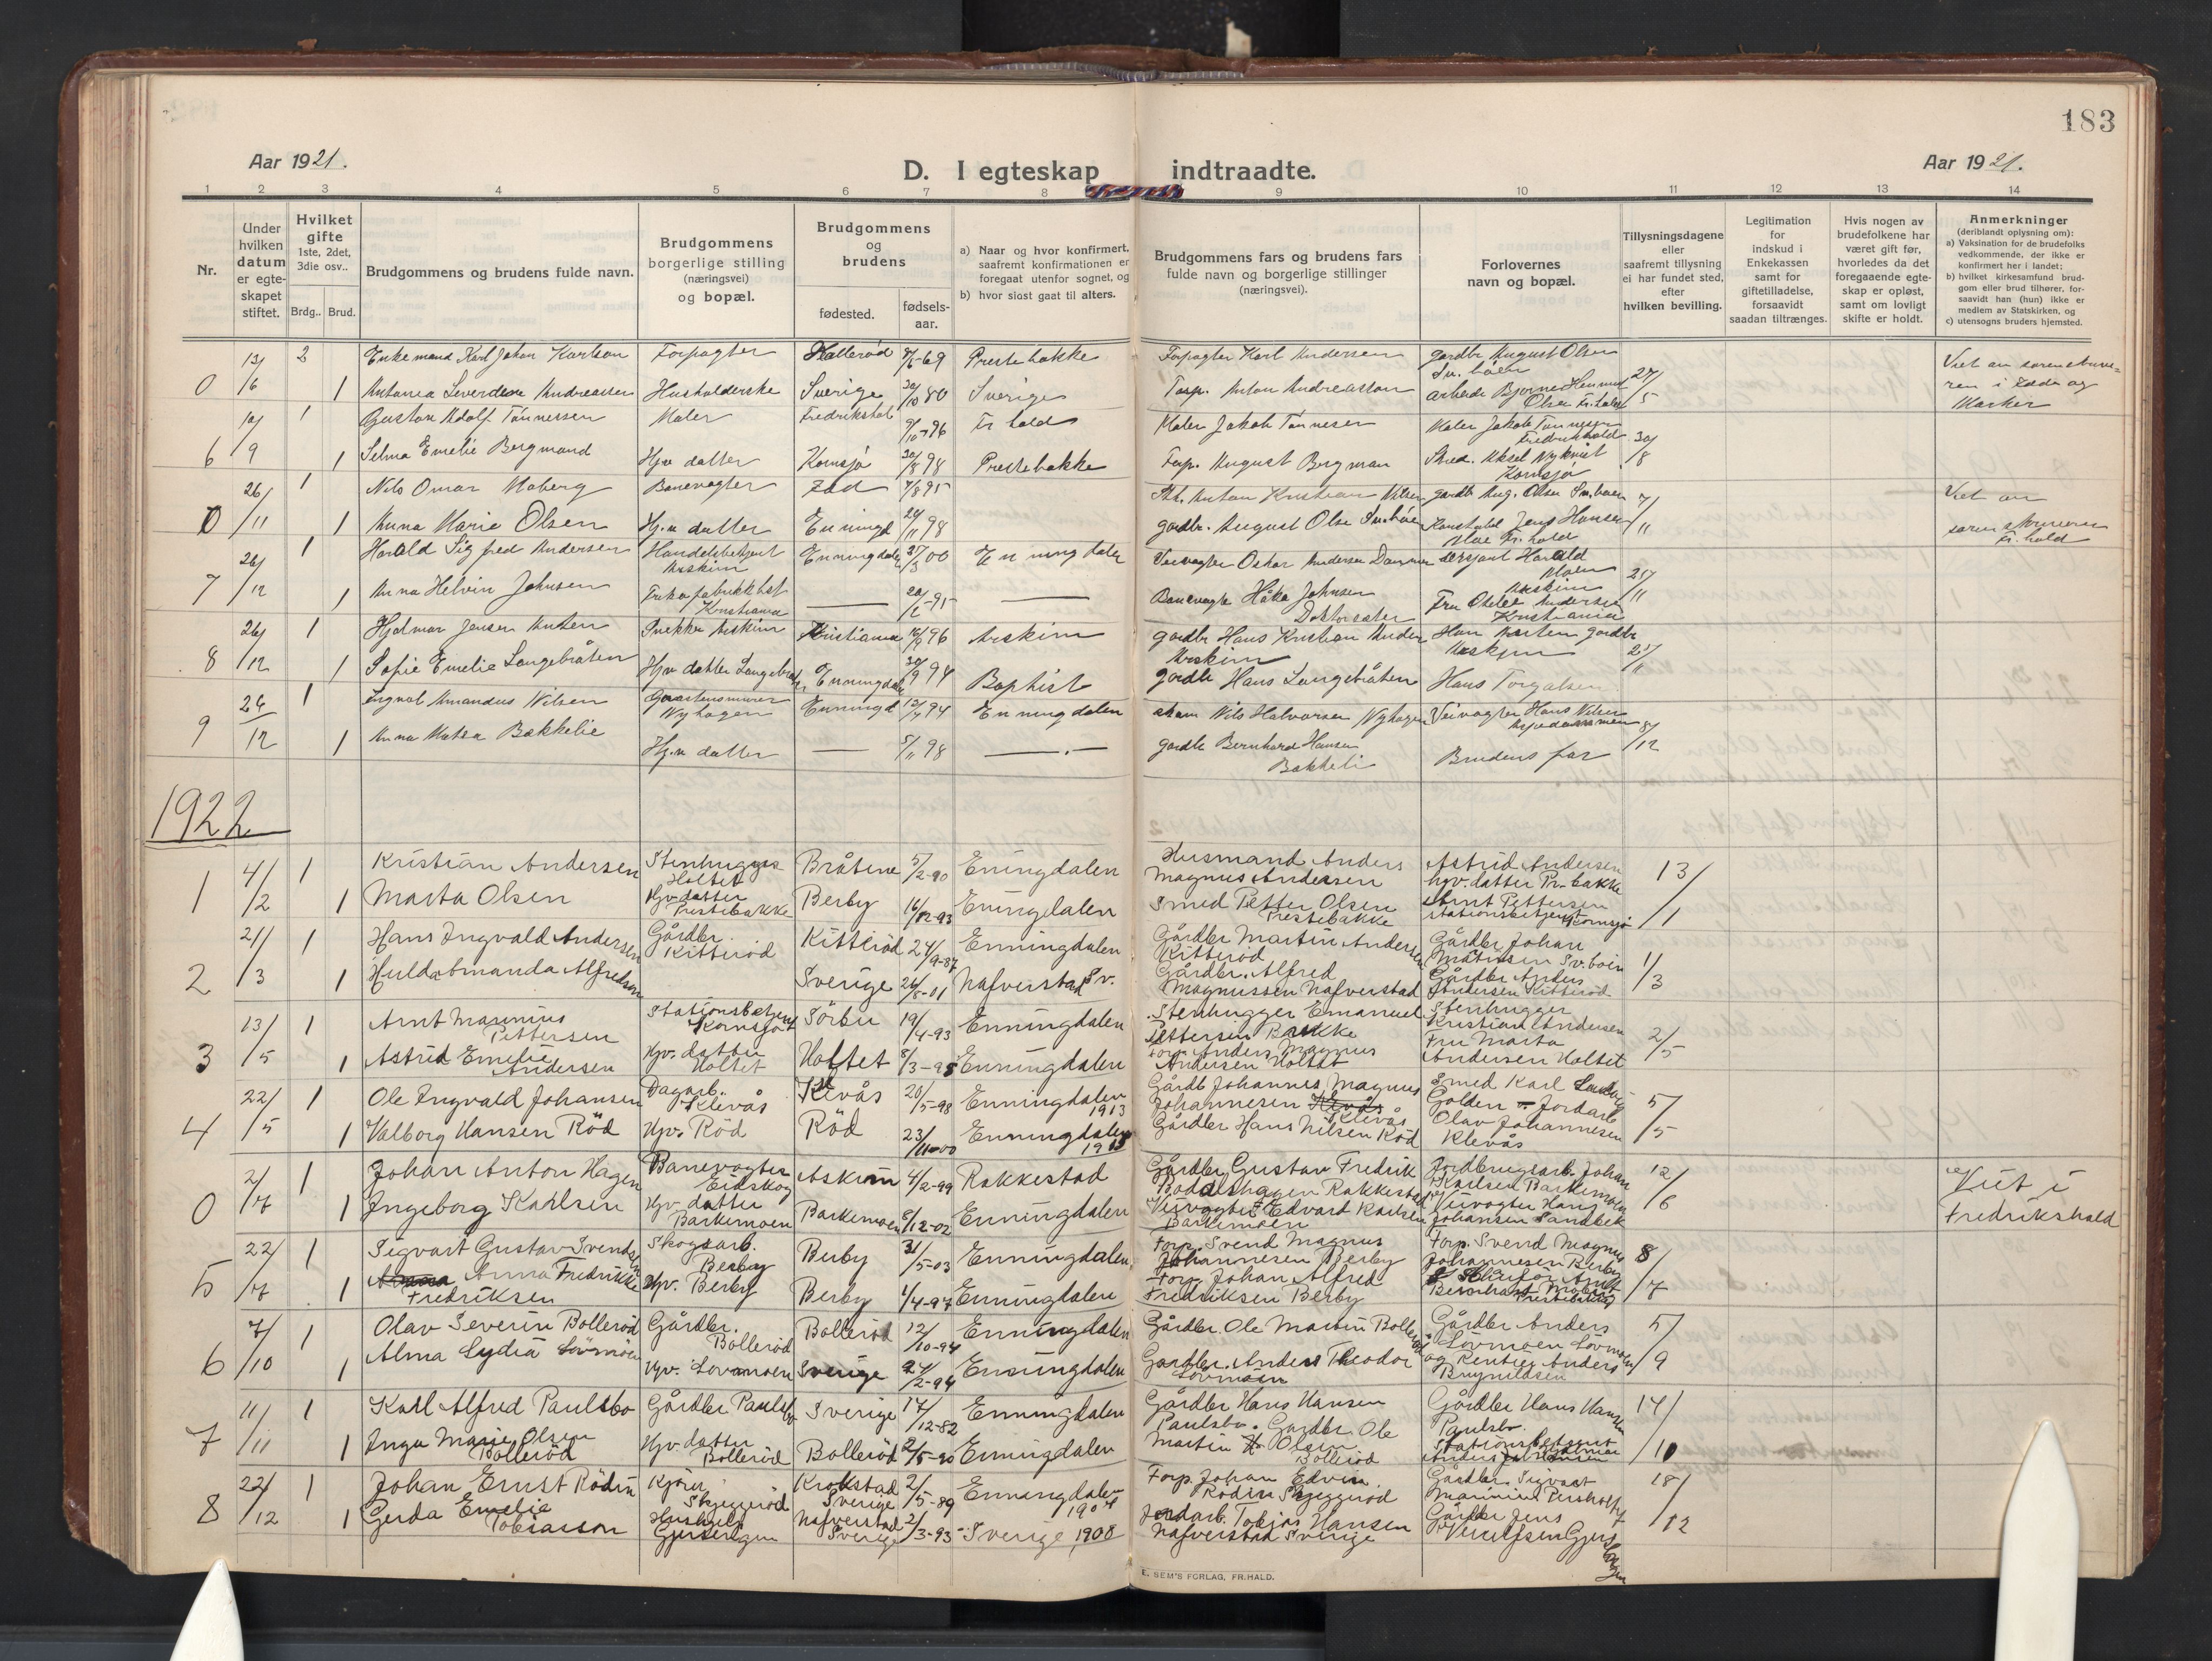 183
Aar 1921.
D. I egteskap indtraadte.
Aar 1921.
1 2 3 4 5 6 7 8 9 10 11 12 13 14
Nr.
Under hvilken datum er egte-skapet stiftet.
Hvilket gifte 1ste, 2det, 3die osv..
Brdg.. Brud.
Brudgommens og brudens fulde navn.
Brudgommens borgerlige stilling (næringsvei) og bopæl.
Brudgommens og brudens
fødested.
fødsels-aar.
a) Naar og hvor konfirmert, saafremt konfirmationen er foregaat utenfor sognet, og
b) hvor sidst gaat til alters.
Brudgommens fars og brudens fars fulde navn og borgerlige stillinger (næringsvei).
Forlovernes navn og bopæl.
Tillysningsdagene eller saafremt tillysning ei har fundet sted, efter hvilken bevilling.
Legitimation for indskud i Enkekassen samt for giftetilladelse, forsaavidt saadan tiltrænges.
Hvis nogen av brudefolkene har været gift før, hvorledes da det foregaaende egte-skap er opløst, samt om lovligt skifte er holdt.
Anmerkninger
(deriblandt oplysning om):
a) Vaksination for de brudefolks vedkommende, der ikke er konfirmert her i landet;
b) hvilket kirkesamfund brud-gom eller brud tilhører, for-saavidt han (hun) ikke er medlem av Statskirken, og
c) utensogns bruders hjemsted.
0 12/6 2 Enkemand Karl Johan Karlson Forpagter Hallerød 69 Prestebakke Forpagter Karl Andersen gardbr August Olsen
1 Antonia Andreassen Husholderske Sverige 20/10 80 Sverige Torp. Anton Andreasson Olsen Fr.hald 27/5
i Idd og Marker
6 10/9 1 Gustav Adolf Tønnessen Maler Fredrikshald 9/10-96 Fr hald Maler Jakob Tønnesen Maler Jakob Tønnesen Fredrikshald
1 Selma Emelie Bergmand Hjv datter Kornsjø 20/8 98 Prestebakke Forp. August Bergman Aksel Nykvist Kornsjø 30/8
0 26/11 1 Nils Omar Moberg Banevogter Idd 7/8 95 Anton Kristian Nilsen gardb Aug. Olsen
1 Anna Marie Olsen Hj.v datter Enningd 24/11 98 gardbr. August Olsen Jens Hansen Fr. hald 7/11
Viet av sorenskriveren Fr. hald
7 26/12 1 Harald Sigfred Andersen Handelsbetjent Askim Enningdalen 27/3 00 Enningdalen Veivogter Oskar Andersen sersjant Harald Moen Askim
1 Anna Helvin Johnsen Kristiania — 20/1-95 — Banevogter Håkon Johnsen Fru Andersen Kristiania 27/11
8 26/12 1 Hjalmar Jensen Snekker Askim Kristiania 96 Askim gardbr Hans Kristian Askim gardbr Askim
1 Sofie Emelie Langebråten Hjv datter Langebråten Enningdalen 30/9 94 Baptist gardb Hans Langebråten Hans Torgalsen 27/11
9 26/12 1 Ingval Amandus Nilsen Nyhagen Enningd 12/7 94 Enningdalen Nils Halvorsen Nyhagen Veivogter Hans Nilsen
1 Anna Bakkelie Hj.v datter — 5/11 98 — gardb Bernhard Hansen Bakkeli Brudens far 8/12
1922
1 4/2 1 Kristian Andersen Stenhugger Holtet Bråtene 5/2-90 Eningdalen Husmand Anders Magnus Andersen Astrid Andersen hjv. datter Pr.bakke
1 Marta Olsen Hjv. datter Prestebakke Berby 16/12-93 Eningdalen Smed Petter Olsen Prestebakke Arnt Pettersen stationsbetjent Kornsjø 13/1
2 21/3 1 Hans Ingvald Andersen Gårdbr. Kitteröd Kitteröd 24/9-87 Enningdalen Gårdbr Martin Andersen Kitteröd Gårdbr Johan
1 Hulda Amanda Alfredson Sverige 26/8-01 Nafverstad Sv. Gårdbr. Alfred Magnussen Nafverstad Gårdbr Anders Andersen Kitteröd 1/3
3 13/5 1 Arnt Marinius Pettersen Stationsbetjent Kornsjø Sörbu 19/4-93 Enningdalen Stenhugger Emanuel Pettersen Bakke Stenhugger Kristian Andersen
1 Astrid Emelie Andersen Hjv. datter Holtet Holtet 8/3-98 Enningdalen Forp. Anders Magnus Andersen Holtet Fru Marta Andersen Holtet 2/5
4 22/5 1 Ole Ingvald Johansen Dagarb. Klevås Klevås 20/5-98 Enningdalen 1913 Gårdb Johannes Magnus Johannesen Klevås Smed Karl Ludvig Golden
1 Valborg Hansen Röd Hjv. Röd Röd 23/11-00 Enningdalen 1915 Gårdbr Hans Nilsen Röd Jordarb Olav Johannesen Klevås 5/5
0 2/7 1 Johan Anton Hagen Banevogter Eidskog Askim 4/2-99 Rakkestad Gårdbr Gustav Fredrik Rakkestad Jordbrugsarb. Johan Karlsen Barkemoen
1 Ingeborg Karlsen Hjv datter Barkemoen Barkemoen 8/12-02 Enningdalen Veivogter Edvard Karlsen Barkemoen Veivogter Hans Johansen Sandbek 12/6
Viet i Fredrikshald
5 22/7 1 Sigvart Gustav Svendsen Skogsarb. Berby Berby 31/5-03 Enningdalen Forp. Svend Magnus Johannesen Berby Forp. Svend Magnus Johannesen Berby
1 Anna Fredrikke Fredriksen Hjv. Berby Berby 4/4-97 Enningdalen Forp. Johan Alfred Fredriksen Berby Prestebakke 8/7
6 7/10 1 Olav Severin Bolleröd Gårdbr. Bolleröd Bolleröd 12/10-94 Enningdalen Gårdbr. Ole Martin Bolleröd Gårdbr Anders Lövmoen Lövmoen
1 Alma Lydia Lövmoen Hjv. Lövmoen Sverige 24/2-94 Enningdalen Gardbr. Anders Theodor Lövmoen og Rentier Anders Brynildsen 5/9
7 11/11 1 Karl Alfred Paulsbo Gårdbr Paulsbo Sverige 17/12-82 Enningdalen Gårdbr Hans Hansen Paulsbo. Gårdbr Hans Hansen Paulsbo.
1 Inga Marie Olsen Bolleröd Hjv. datter Bolleröd Bolleröd 2/5-90 Enningdalen Gardbr. Ole Martin Olsen Bolleröd Stationsbetjent 14/10
8 22/12 1 Johan Ernst Rödin Skjeggeröd Krokstad Sverige 2/5-89 Enningdalen 1904 Forp. Johan Edvin Rödin Skjeggeröd Gårdbr. Sigvart
1 Gerda Emelia Tobiasson Nafverstad Sverige 2/3-93 Sverige 1908 Jordarb. Tobias Hansen Nafverstad Sverige Gårdbr Jens 18/12
E. SEM'S FORLAG, FR.HALD.